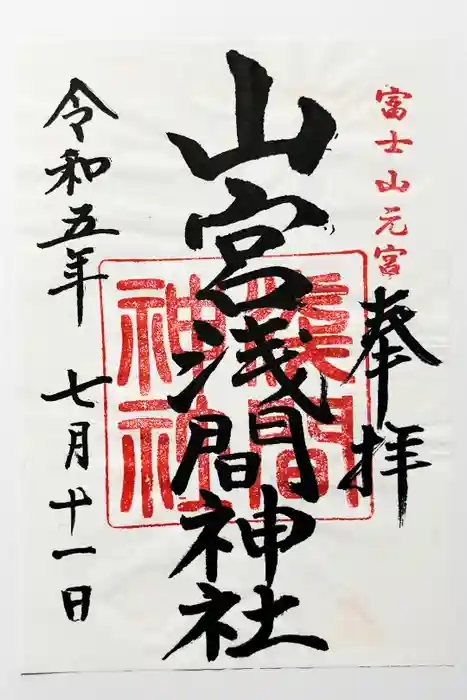 富士山元宮
奉拝
山宮浅間神社
淺間
神社
令和五年
七月十一日